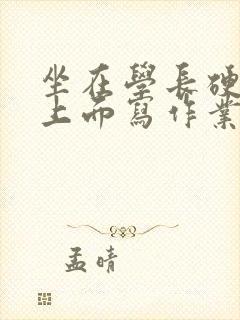 坐在學長硬
上而寫作業
孟晴